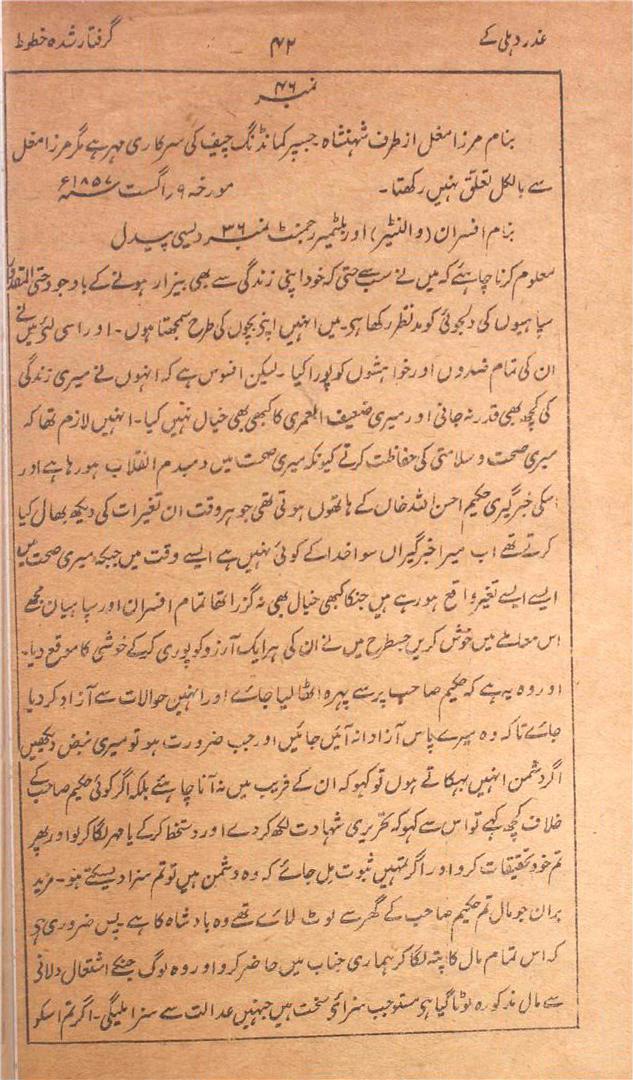 غدر دہلی کے ۴۲ گرفتار شدہ خطوط
نمبر ۴۶
بنام مرزا مغل از طرف شہنشاہ جسپر کمانڈنگ چیف کی سرکاری مہر ہے مگر مرزا مغل
سے بالکل تعلق نہیں رکھتا۔ مورخہ ۹ اگست ۱۸۵۷ء
بنام افسران (والنٹیر) اور پلٹمیر رجمنٹ نمبر ۳۶ دیسی پیدل
معلوم کرنا چاہئے کہ میں نے سب سے حتی کہ خود اپنی زندگی سے بھی بیزار ہونے کے باوجود حتی المقدور
سپاہیوں کی دلجوئی کو مدنظر رکھا ہے۔ میں انہیں اپنے بچوں کی طرح سمجھتا ہوں۔ اور اسی لئے میں نے
ان کی تمام ضدوں اور خواہشوں کو پورا کیا۔ لیکن افسوس ہے کہ انہوں نے میری زندگی
کی کچھ بھی قدر نہ جانی اور میری ضعیف العمری کا کبھی بھی خیال نہیں کیا۔ انہیں لازم تھا کہ
میری صحت و سلامتی کی حفاظت کرتے کیونکہ میری صحت میں دمبدم انقلاب ہو رہا ہے اور
اسکی خبرگیری حکیم احسن اللہ خاں کے ہاتھوں ہوتی تھی جو ہر وقت ان تغیرات کی دیکھ بھال کیا
کرتے تھے اب میرا خبرگیراں سوا خدا کے کوئی نہیں ہے ایسے وقت میں جبکہ میری صحت میں
ایسے ایسے تغیر واقع ہو رہے ہیں جنکا کبھی خیال بھی نہ گزرا تھا تمام افسران اور سپاہیان مجھے
اس معاملے میں خوش کریں جسطرح میں نے ان کی ہر ایک آرزو کو پوری کرکے خوشی کا موقع دیا۔
اور وہ یہ ہے کہ حکیم صاحب پر سے پہرہ اٹھا لیا جائے اور انہیں حوالات سے آزاد کر دیا
جائے تاکہ وہ میرے پاس آزادانہ آئیں جائیں اور جب ضرورت ہو تو میری نبض دیکھیں
اگر دشمن انہیں بہکاتے ہوں تو کہو کہ ان کے فریب میں نہ آنا چاہئے بلکہ اگر کوئی حکیم صاحب کے
خلاف کچھ کہے تو اس سے کہو کہ تحریری شہادت لکھ کر دے اور دستخط کرکے یا مہر لگا کر اور پھر
تم خود تحقیقات کرو اور اگر تمہیں ثبوت مل جائے کہ وہ دشمن ہیں تو تم سزا دیسکتے ہو۔ مزید
بران جو مال تم حکیم صاحب کے گھر سے لوٹ لائے تھے وہ بادشاہ کا ہے۔ پس ضروری ہے
کہ اس تمام مال کا پتہ لگا کر ہماری جناب میں حاضر کرو اور وہ لوگ جنکے اشتعال دلانے
سے مال مذکورہ لوٹا گیا ہے مستوجب سزائے سخت ہیں جنہیں عدالت سے سزا ملیگی۔ اگر تم اسکو